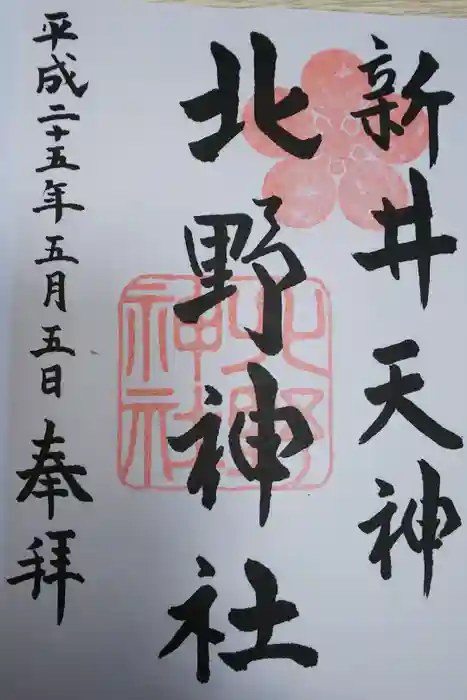 新井天神
北野神社
平成二十五年五月五日 奉拝
北野神社